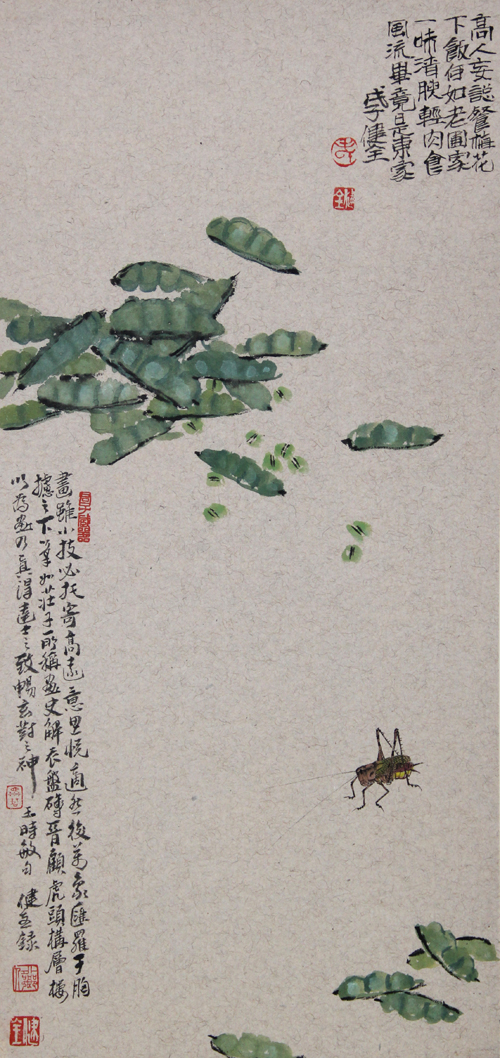 高人妄說餐梅花
下飯何如老圃家
一味清腴輕肉食
風流畢竟是東家
戊子健全
畫雖小技必托寄高遠意思悅適然後萬象匯羅于胸
攄之下筆如莊子所稱畫史解衣盤礡晉顧虎頭構層樓
以為畫所真得達士之致暢玄對之神 王時敏句 健全錄